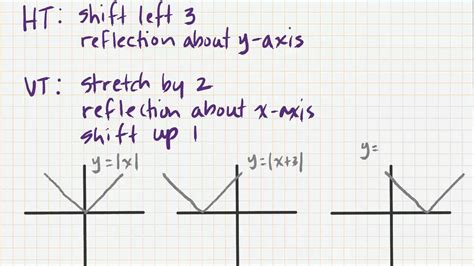 HT: shift left 3
reflection about y-axis
VT: stretch by 2
reflection about x-axis
shift up 1
y=|x|
y=|x+3|
y=